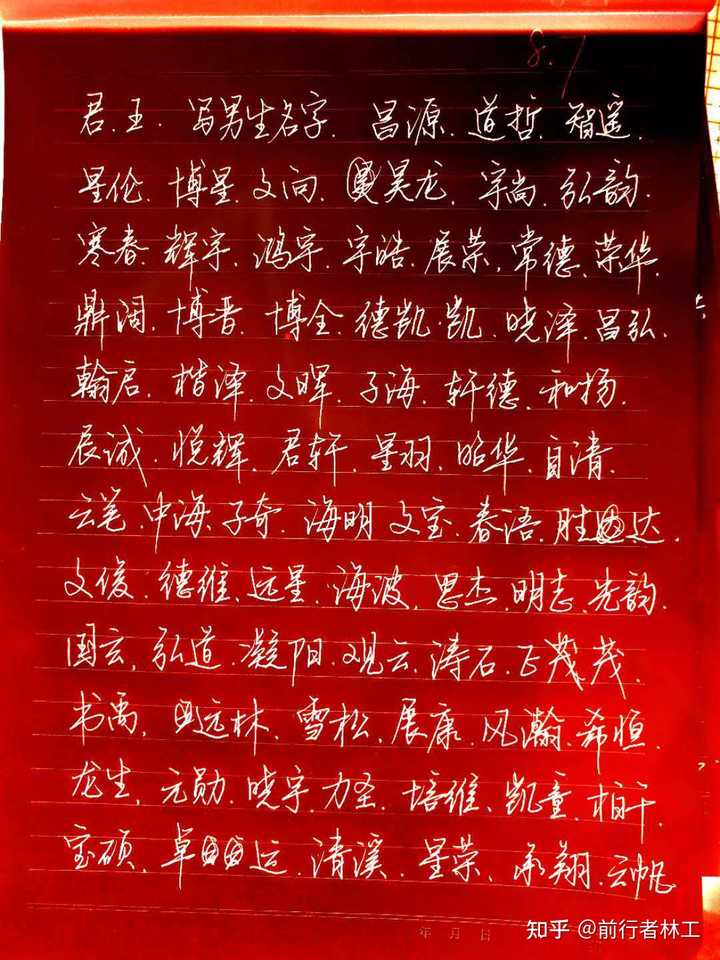 8.7
君.王.写男生名字.昌源.道哲.智遥.
星伦.博星.文向.昊龙.宇尚.弘韵.
寒春.辉宇.鸿宇.宇皓.展荣.常德.荣华.
鼎阔.博晋.博全.德凯.凯.晓泽.昌弘.
翰启.楷泽.文晖.子海.轩德.和扬.
辰诚.悦辉.君轩.星羽.昭华.自清.
云笔.中海.子奇.海明.文宝.春语.胜达.
文俊.德维.远星.海波.思杰.明志.先韵.
国云.弘道.凝阳.观云.涛石.正茂茂.
书禹.远林.雪松.展康.风瀚.希恒.
龙生.元勋.晓宇.力圣.培维.凯童.柏干.
宝硕.卓运.清溪.星荣.承翔.云帆
年 月 日
知乎 @前行者林工